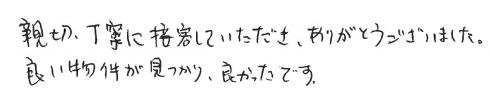 親切、丁寧に接客していただき、ありがとうございました。
良い物件が見つかり、良かったです。